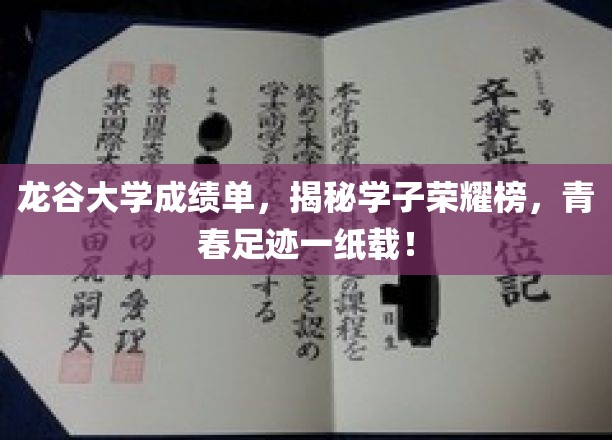 第
号
卒業証
学位記
本学商学部
の課程を
修めて本学
たことを認め
学士(商学)の学
する
平成
東京国際大学
長田村愛理
東京国際大学
長田尻嗣夫
龙谷大学成绩单，揭秘学子荣耀榜，青
春足迹一纸载！